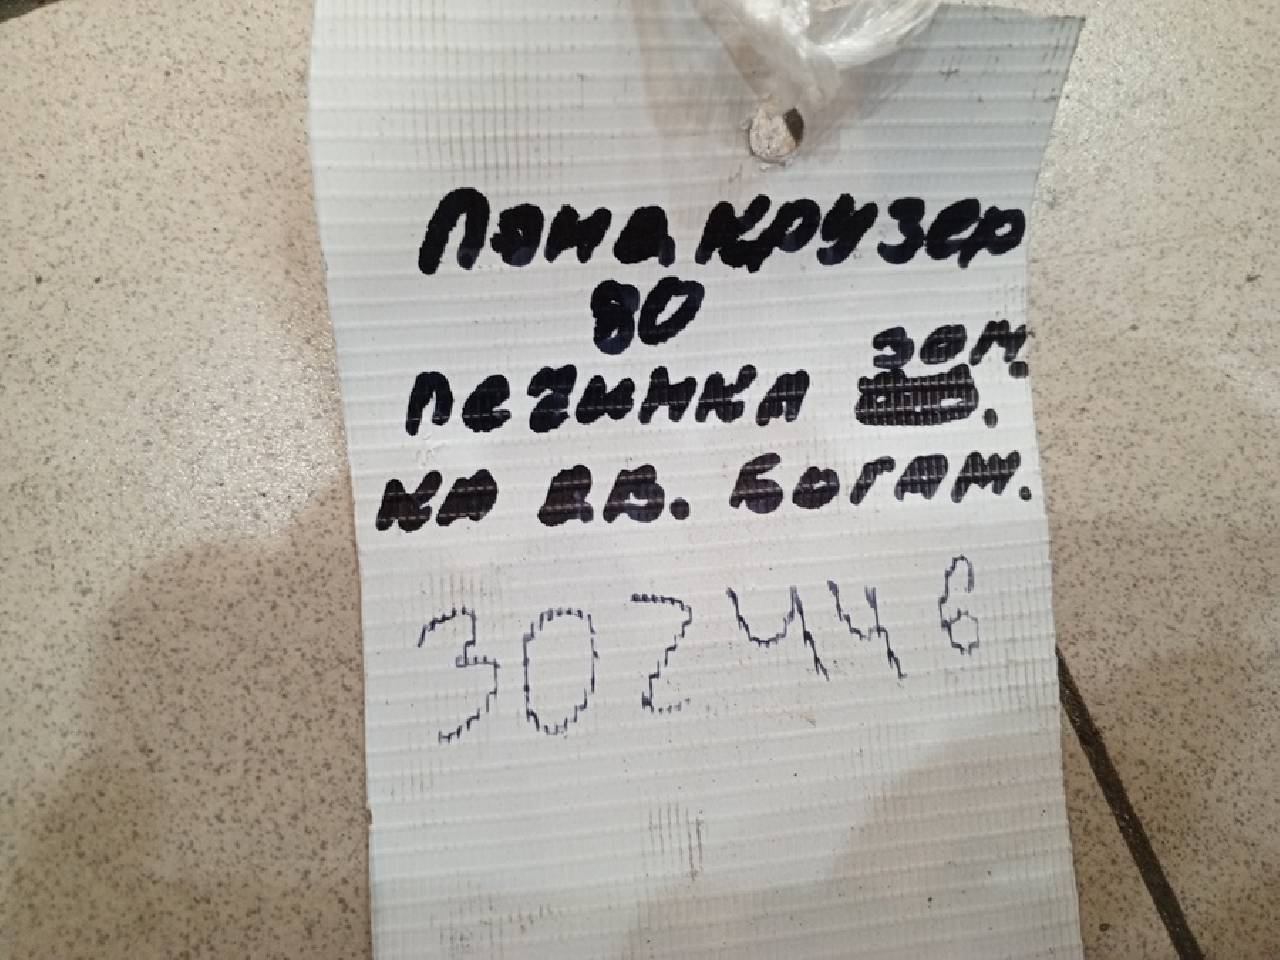 Лэнд крузер
80
печинка зам.
на дв. богам.
302446